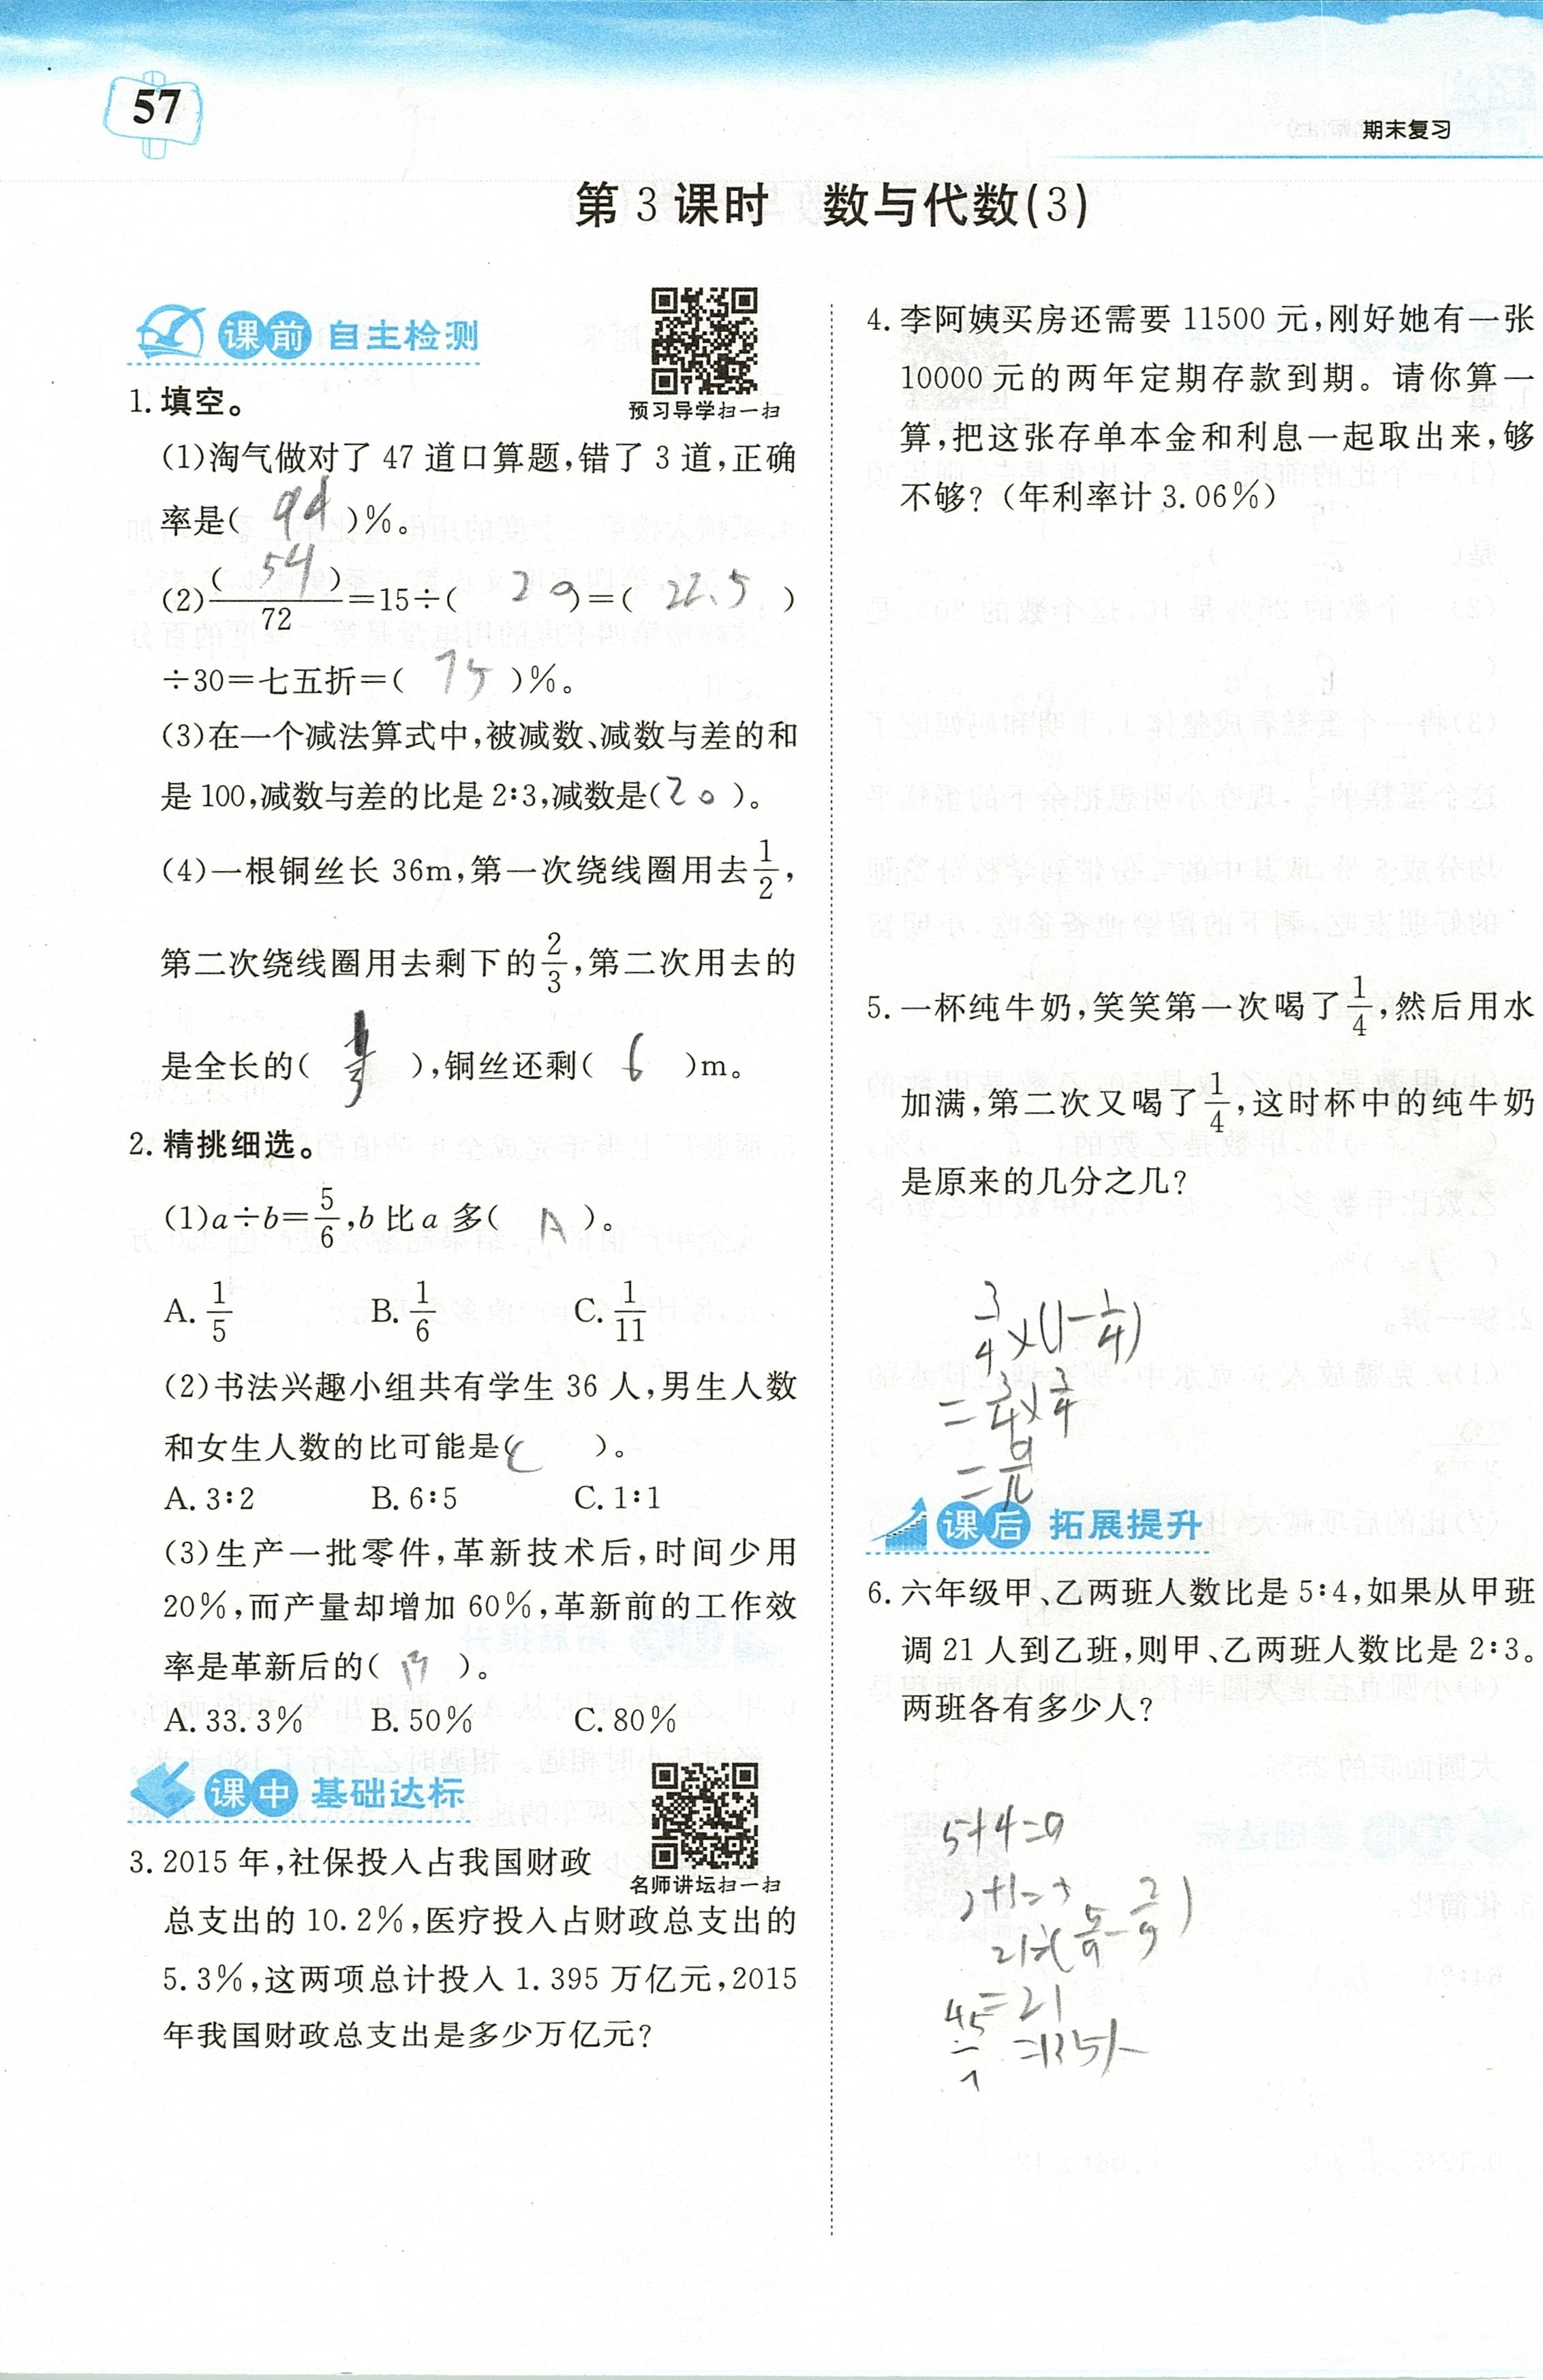 57
期末复习
第3课时 数与代数(3)
课前 自主检测
预习导学扫一扫
1. 填空。
(1)淘气做对了 47 道口算题,错了 3 道,正确
率是( 94 )%。
(2)( 54 )/72=15÷( 20 )=( 22.5 )
÷30=七五折=( 75 )%。
(3)在一个减法算式中,被减数、减数与差的和
是 100,减数与差的比是 2∶3,减数是(20)。
(4)一根铜丝长 36m,第一次绕线圈用去1/2,
第二次绕线圈用去剩下的2/3,第二次用去的
是全长的( 1/3 ),铜丝还剩( 6 )m。
2. 精挑细选。
(1)a÷b=5/6,b 比 a 多( A )。
A. 1/5 B. 1/6 C. 1/11
(2)书法兴趣小组共有学生 36 人,男生人数
和女生人数的比可能是( C )。
A. 3∶2 B. 6∶5 C. 1∶1
(3)生产一批零件,革新技术后,时间少用
20%,而产量却增加 60%,革新前的工作效
率是革新后的( B )。
A. 33.3% B. 50% C. 80%
课中 基础达标
名师讲坛扫一扫
3. 2015 年,社保投入占我国财政
总支出的 10.2%,医疗投入占财政总支出的
5.3%,这两项总计投入 1.395 万亿元,2015
年我国财政总支出是多少万亿元?
4. 李阿姨买房还需要 11500 元,刚好她有一张
10000 元的两年定期存款到期。请你算一
算,把这张存单本金和利息一起取出来,够
不够?(年利率计 3.06%)
5. 一杯纯牛奶,笑笑第一次喝了1/4,然后用水
加满,第二次又喝了1/4,这时杯中的纯牛奶
是原来的几分之几?
3/4×(1-1/4)
=3/4×3/4
=9/16
课后 拓展提升
6. 六年级甲、乙两班人数比是 5∶4,如果从甲班
调 21 人到乙班,则甲、乙两班人数比是 2∶3。
两班各有多少人?
5+4=9
21÷(5/9-2/9)
=21
45
=135人